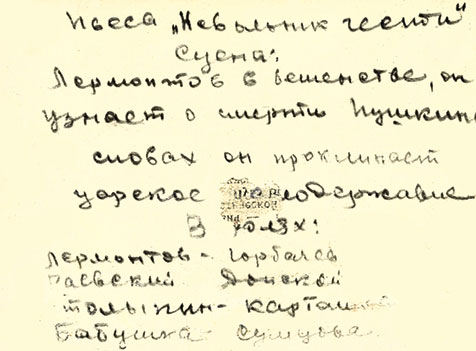 пьеса „Невольник чести“
Сцена:
Лермонтов в бешенстве, он
узнает о смерти Пушкина
словах он проклинает
царское самодержавие
В ролях:
Лермонтов - Горбачев
Раевский Донской
Столыпин - Карташов
Бабушка - Сумцова